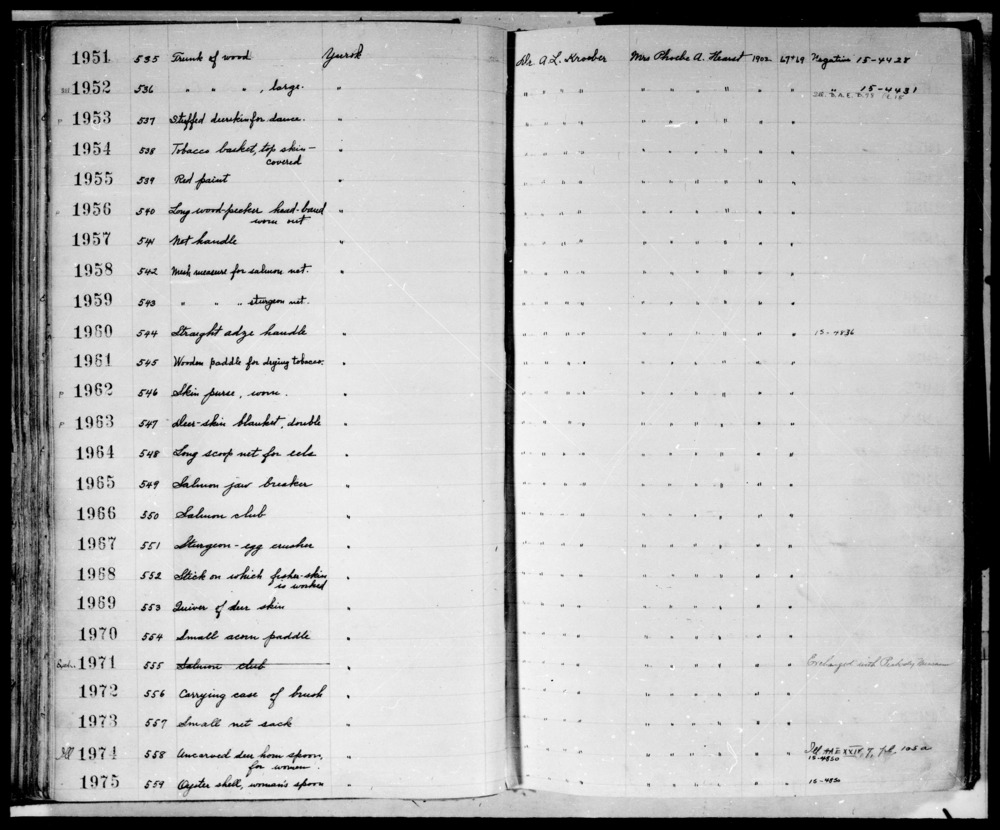 1951 535 Trunk of wood Yurok Dr. A. L. Kroeber Mrs Phoebe A. Hearst 1902 67+69 Negative 15-4428
Ill 1952 536 " " " , large. " " " " " " " " " " " " " 15-4431
Ill. B.A.E. B.78
P 1953 537 Stuffed deerskin for dance. " " " " " " " " " " "
1954 538 Tobacco basket, top skin-
covered " " " " " " " " " " "
1955 539 Red paint " " " " " " " " " " "
P 1956 540 Long wood-pecker head-band
worn out " " " " " " " " " " "
1957 541 Net handle " " " " " " " " " " "
1958 542 Mesh measure for salmon net. " " " " " " " " " " "
1959 543 " " " sturgeon net. " " " " " " " " " "
1960 544 Straight adze handle " " " " " " " " " " " 15-7836
1961 545 Wooden paddle for drying tobacco. " " " " " " " " " " "
P 1962 546 Skin purse, worn. " " " " " " " " " " "
P 1963 547 Deer-skin blanket, double " " " " " " " " " " "
1964 548 Long scoop net for eels " " " " " " " " " " "
1965 549 Salmon jaw breaker " " " " " " " " " " "
1966 550 Salmon club " " " " " " " " " " "
1967 551 Sturgeon-egg crusher " " " " " " " " " " "
1968 552 Stick on which fisher-skin
is worked " " " " " " " " " " "
1969 553 Quiver of deer skin " " " " " " " " " " "
1970 554 Small acorn paddle " " " " " " " " " " "
Exch. 1971 555 Salmon club " " " " " " " " " " " Exchanged with Peabody Museum
1972 556 Carrying case of brush " " " " " " " " " " "
1973 557 Small net sack " " " " " " " " " " "
Ill 1974 558 Uncarved deer horn spoon,
for women. " " " " " " " " " " " Ill. AAE XXIV, 7, pl. 105a
15-4830
1975 559 Oyster shell, woman's spoon " " " " " " " " " " " 15-4830